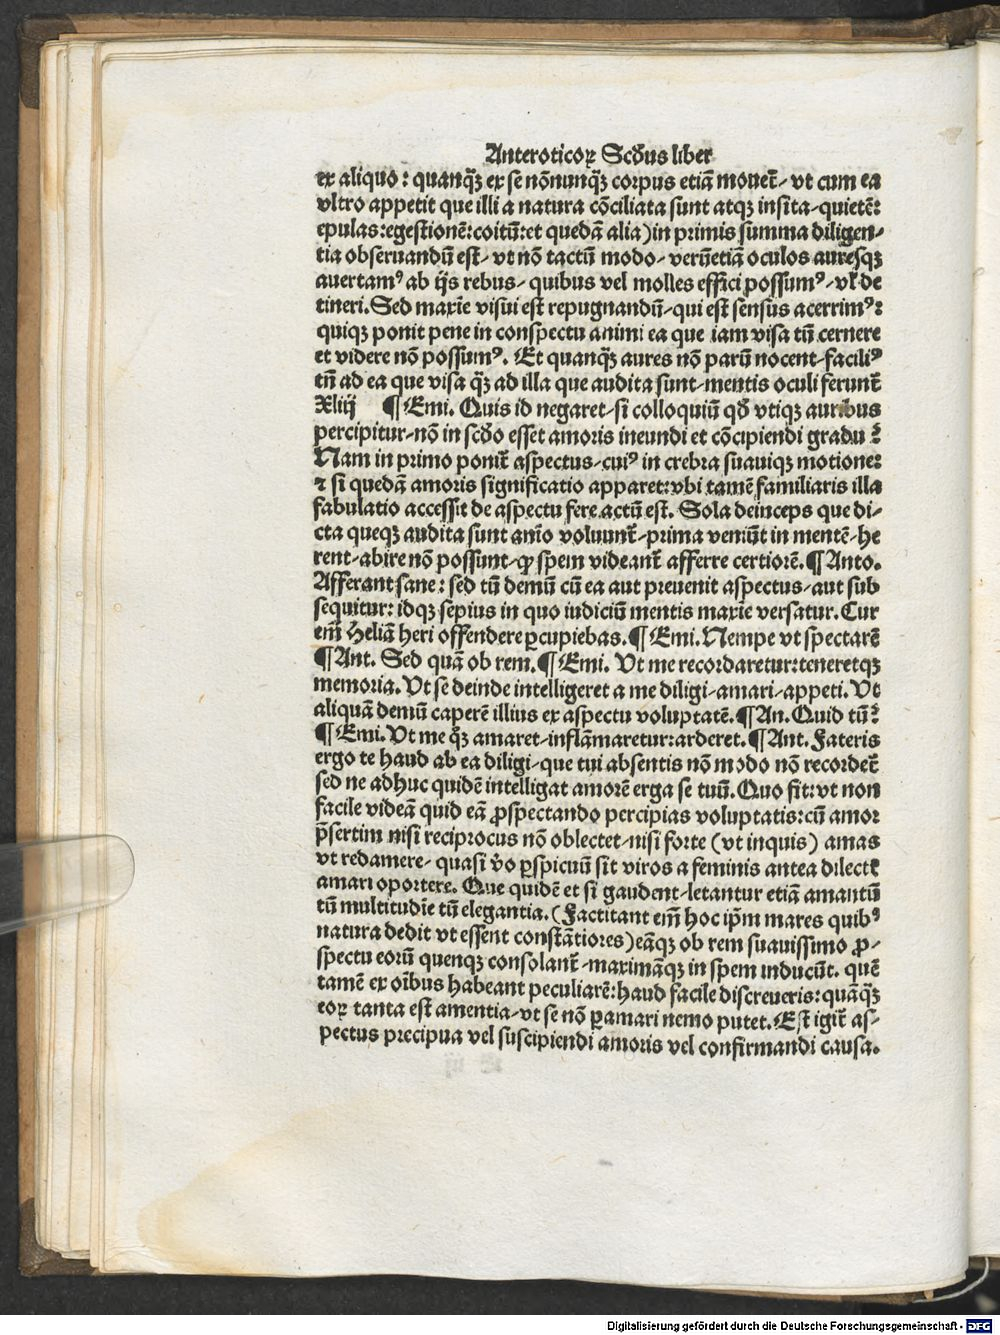 Anteroticoꝝ Scd̃us liber
ex aliquo: quanqꝫ̃ ex se nõnunqꝫ̃ corpus etiã mouet̃, vt cum ea
vltro appetit que illi a natura cõciliata sunt atqꝫ insita, quietẽ:
epulas:egestionẽ:coitũ:et quedã alia)in primis summa diligen,
tia obseruandũ est, vt nõ tactũ modo, verũetiã oculos auresqꝫ
auertamꝰ ab ijs rebus, quibus vel molles effici possumꝰ, vl̃ de
tineri. Sed maxĩe visui est repugnandũ, qui est sensus acerrimꝰ:
quiqꝫ ponit pene in conspectu animi ea que iam visa tũ cernere
et videre nõ possumꝰ. Et quanqꝫ̃ aures nõ parũ nocent, faciliꝰ
tñ ad ea que visa qꝫ̃ ad illa que audita sunt, mentis oculi ferunt̃
Xliij ¶ Emi. Quis id negaret, si colloquiũ qd̃ vtiqꝫ auribus
percipitur, nõ in scd̃o esset amoris ineundi et cõcipiendi gradu?
Nam in primo ponit̃ aspectus, cuiꝰ in crebra suauiqꝫ motione:
⁊ si quedã amoris significatio apparet:vbi tamẽ familiaris illa
fabulatio accessit de aspectu fere actũ est. Sola deinceps que di,
cta queqꝫ audita sunt aĩo voluunt̃, prima veniũt in mentẽ, he
rent, abire nõ possunt, ꝙ spem videant̃ afferre certiorẽ. ¶ Anto.
Afferant sane: sed tũ demũ cũ ea aut preuenit aspectus, aut sub
sequitur: idqꝫ sepius in quo iudiciũ mentis maxĩe versatur. Cur
em̃ Heliã heri offendere ꝑcupiebas. ¶ Emi. Nempe vt spectarẽ
¶ Ant. Sed quã ob rem. ¶ Emi. Vt me recordaretur:teneretqꝫ
memoria. Vt se deinde intelligeret a me diligi, amari, appeti. Vt
aliquã demũ caperẽ illius ex aspectu voluptatẽ. ¶ An. Quid tũ?
¶ Emi. Vt me qꝫ̃ amaret, inflãmaretur:arderet. ¶ Ant. Fateris
ergo te haud ab ea diligi, que tui absentis nõ modo nõ recordet̃
sed ne adhuc quidẽ intelligat amorẽ erga se tuũ. Quo fit:vt non
facile videã quid eã ꝓspectando percipias voluptatis:cũ amor
p̃sertim nisi reciprocus nõ oblectet, nisi forte (vt inquis) amas
vt redamere, quasi v̊o ꝑspicuũ sit viros a feminis antea dilecte
amari oportere. Que quidẽ et si gaudent, letantur etiã amantũ
tũ multitudĩe tũ elegantia. (Factitant em̃ hoc ip̃m mares quibꝰ
natura dedit vt essent constãtiores)eãqꝫ ob rem suauissimo ꝓ,
spectu eorũ quenqꝫ consolant̃, maximãqꝫ in spem inducũt. quẽ
tamẽ ex oĩbus habeant peculiarẽ: haud facile discreueris: quãqꝫ̃
eoꝝ tanta est amentia, vt se nõ ꝑamari nemo putet. Est igit̃ as,
pectus precipua vel suscipiendi amoris vel confirmandi causa.
Digitalisierung gefördert durch die Deutsche Forschungsgemeinschaft - DFG